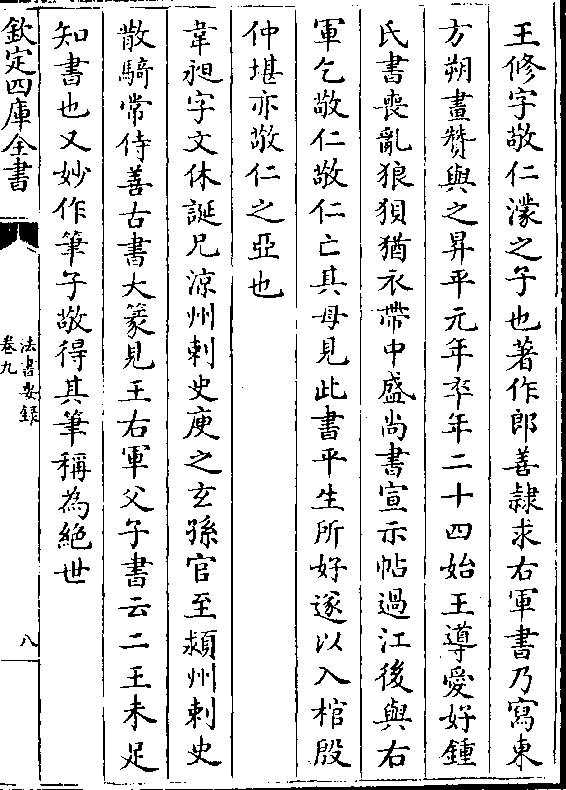 王修字敬仁濛之子也著作郎善隷求右軍書乃寫東
方朔畫賛與之昇平元年卒年二十四始王導愛好鍾
氏書喪亂狼狽猶衣帶中盛尚書宣示帖過江後與右
軍乞敬仁敬仁亡其母見此書平生所好遂以入棺殷
仲堪亦敬仁之亞也
韋昶字文休誕兄涼州刺史康之玄孫官至潁州刺史
散騎常侍善古書大篆見王右軍父子書云二王未足
知書也又妙作筆子敬得其筆稱為絶世
欽定四庫全書
法書要錄
卷九
八